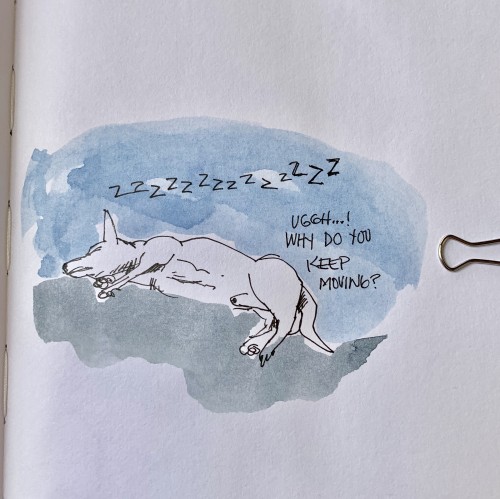 ZZZZZZZZZZZZZZZ
UGGH...!
WHY DO YOU
KEEP
MOVING?